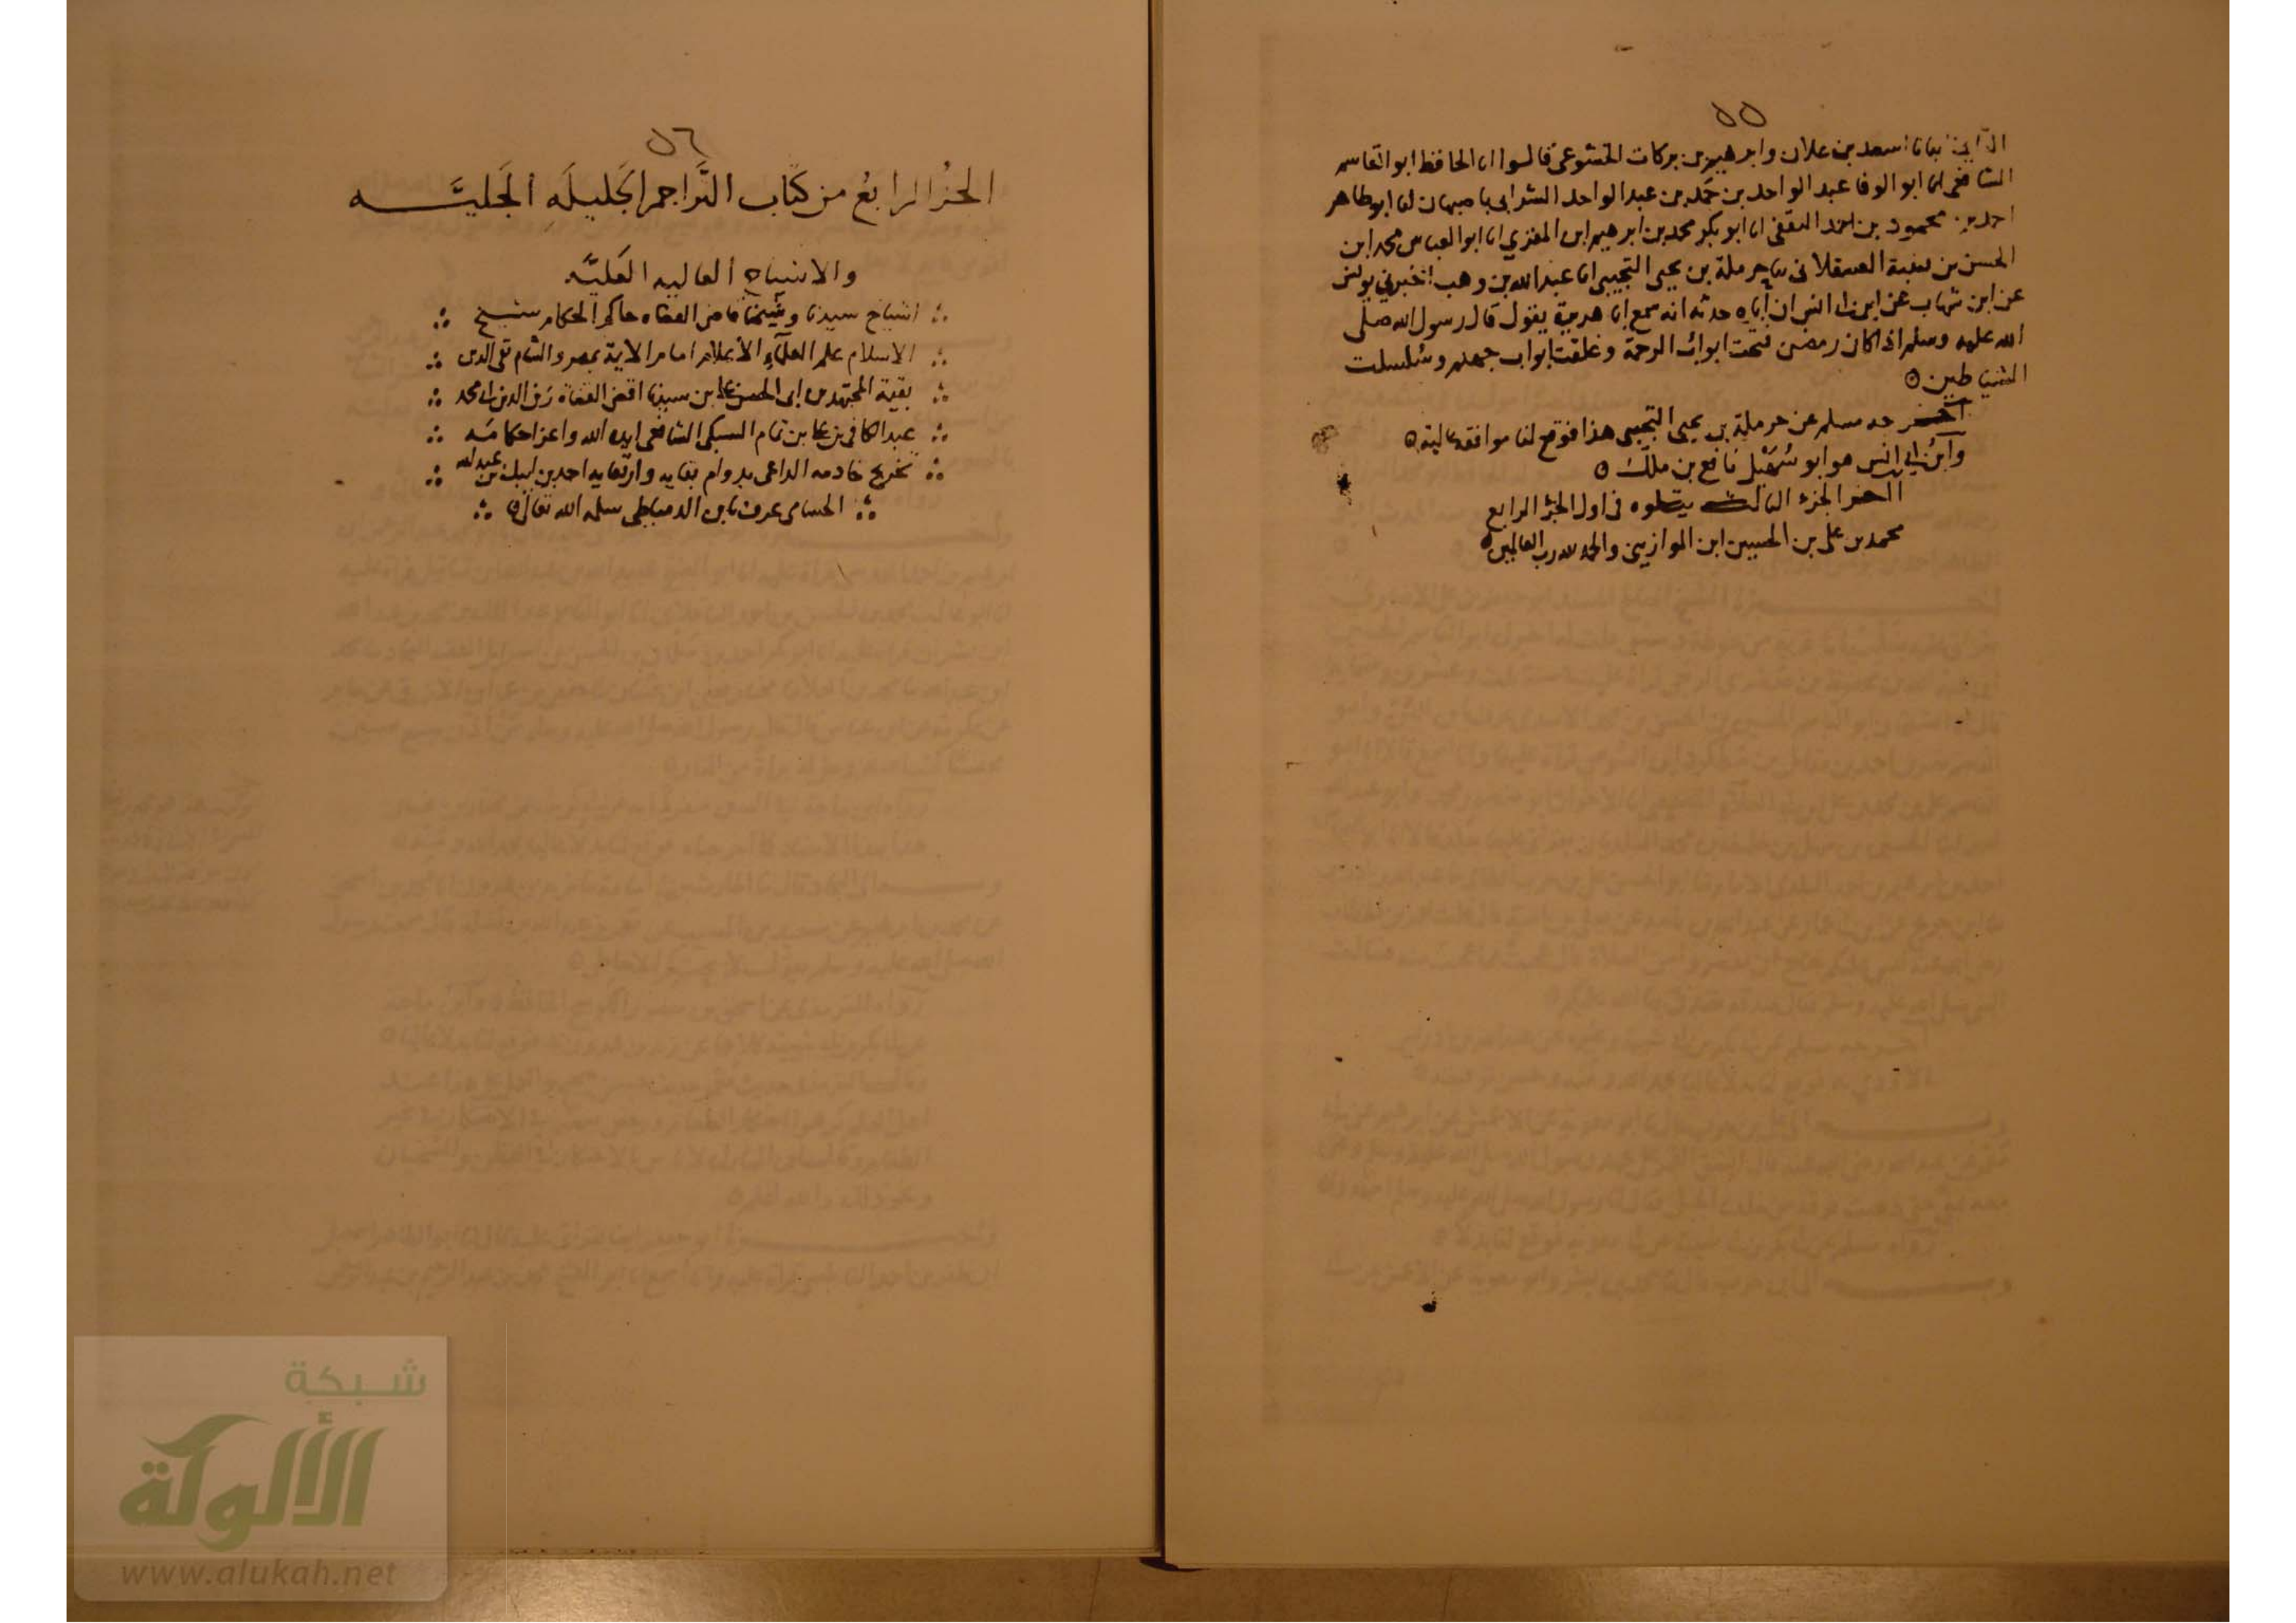 ٥٥
اسعد بن علان وابرهيم بن بركات الخشوعي قالوا انا الحافظ ابو القاسم
الشافعي انا ابو الوفا عبد الواحد بن حمد بن عبد الواحد الشرابي باصبهان انا ابو طاهر
احمد بن محمود بن احمد الثقفي انا ابو بكر محمد بن ابرهيم ابن المقري انا ابو العباس محمد ابن
الحسن بن قتيبة العسقلاني ثنا حرملة بن يحيى التجيبي انا عبد الله بن وهب اخبرني يونس
عن ابن شهاب عن ابن ابي انس ان اباه حدثه انه سمع ابا هريرة يقول قال رسول الله صلى
الله عليه وسلم اذا كان رمضن فتحت ابواب الرحمة وغلقت ابواب جهنم وسلسلت
الشياطين ٥
اخرجه مسلم عن حرملة بن يحيى التجيبي هذا فوقع لنا موافقة عالية ٥
وابن ابي انس هو ابو سهيل نافع بن ملك ٥
اخر الجزء الثالث يتلوه في اول الجزء الرابع
محمد بن علي بن الحسين ابن الموازيني والحمد لله رب العالمين ٥
٥٦
الجزُ الرابعُ من كتاب التَّراجم الجَليلَه الجَليَّــه
والاشياخ العاليه العَليَّه
اشياخ سيدنا وشيخنا قاضي القضاه حاكم الحكام شيخ
الاسلام علم العلماءِ الأعلام امام الايمة بمصر والشام تقي الدين
بقية المجتهدين ابي الحسن علي بن سيدنا اقضى القضاة زين الدين ابي محمد
عبد الكافي بن علي بن تمام السبكي الشافعي ايده الله واعز احكامَه
تخريج خادمه الداعي بدوام بقايه وارتقايه احمد بن ايبك بن عبد الله
الحسامي عرف بابن الدمياطي سلمه الله تعالى
شبكة
الألوكة
www.alukah.net